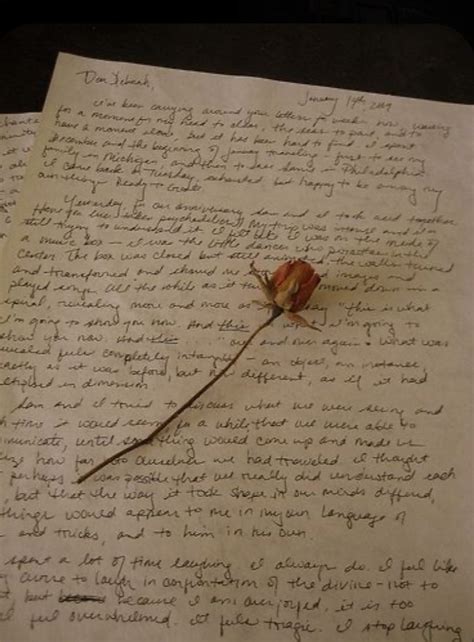 January 14th, 2009
Dear Deborah,
I've been carrying around your letters for weeks now, waiting
for a moment for my head to clear, the seas to part, and to
have a moment alone, but it has been hard to find. I spent
December and the beginning of January traveling - first to see my
family in Michigan, and then to see Sam's in Philadelphia.
I came back on Tuesday, exhausted but happy to be among my
own things. Ready to create.
Yesterday, for our anniversary, Sam and I took acid together.
Have you ever taken psychedelics? My trip was intense and I'm
still trying to understand it. I felt like I was on the inside of
a music box - I was the little dancer who pirouettes in the
center. The box was closed but still animated. The walls turned
and transformed and showed me images and
played songs. All the while as it turned moved down in a
spiral, revealing more and more as say "this is what
I'm going to show you now. And this is what I'm going to
show you now. And this ... " over and over again. What was
revealed felt completely intangible - an object, an instance,
exactly as it was before, but now different, as if it had
eclipsed in dimension.
Sam and I tried to discuss what we were seeing and
each time it would seem for a while that we were able to
communicate, until something would come up and made us
realize how far into ourselves we had traveled. I thought
perhaps it was possible that we really did understand each
, but that the way it took shape in our minds differed,
things would appear to me in my own language of
and tricks, and to him in his own.
spent a lot of time laughing. I always do. I feel like
to laugh in confrontation of the divine - not to
but because I am overjoyed, it is too
I feel overwhelmed. It feels tragic. I stop laughing